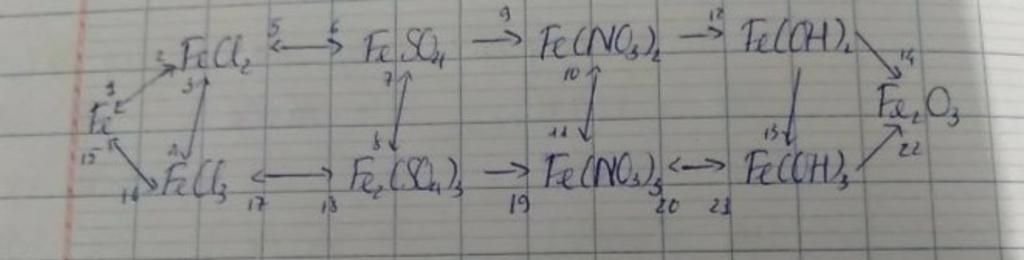 FeCl₂ 5 ⟷ 6 FeSO₄ 9 → Fe(NO₃)₂ 12 → Fe(OH)₂ 14
2 3 7 10
Fe Fe₂O₃
15 4 8 11 13 22
16 FeCl₃ 17 ⟷ 18 Fe₂(SO₄)₃ 19 → Fe(NO₃)₃ 20 ⟷ 21 Fe(OH)₃